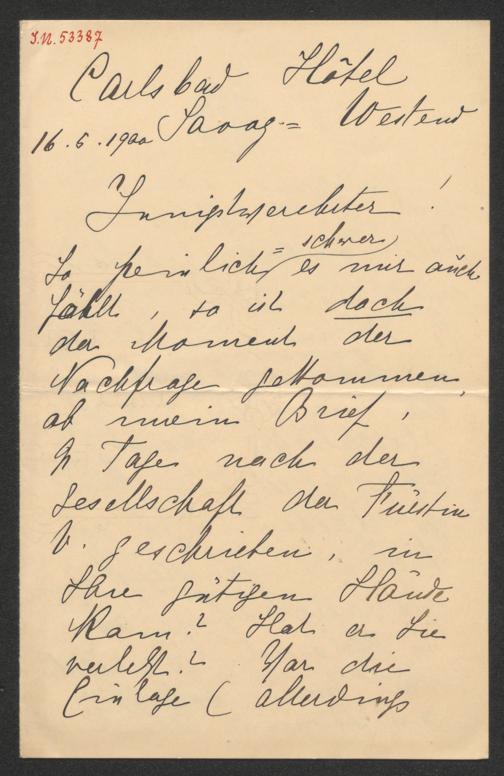 I.N. 53387
Carlsbad Hôtel
Savoy = Westend
16.5.1900
Innigstverehrter!
So peinlich = schwer es mir auch
fällt, so ist doch
der Moment der
Nachfrage gekommen,
ob mein Brief,
Tage nach der
Gesellschaft der Fürstin
V. geschrieben, in
Ihre gütigen Hände
kam? Hat er Sie
verletzt? War die
Einlage (allerdings